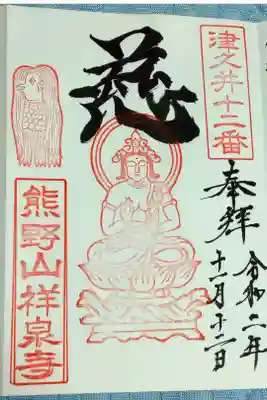 津久井十二番
奉拜
令和二年
十一月十二日
熊野山祥泉寺